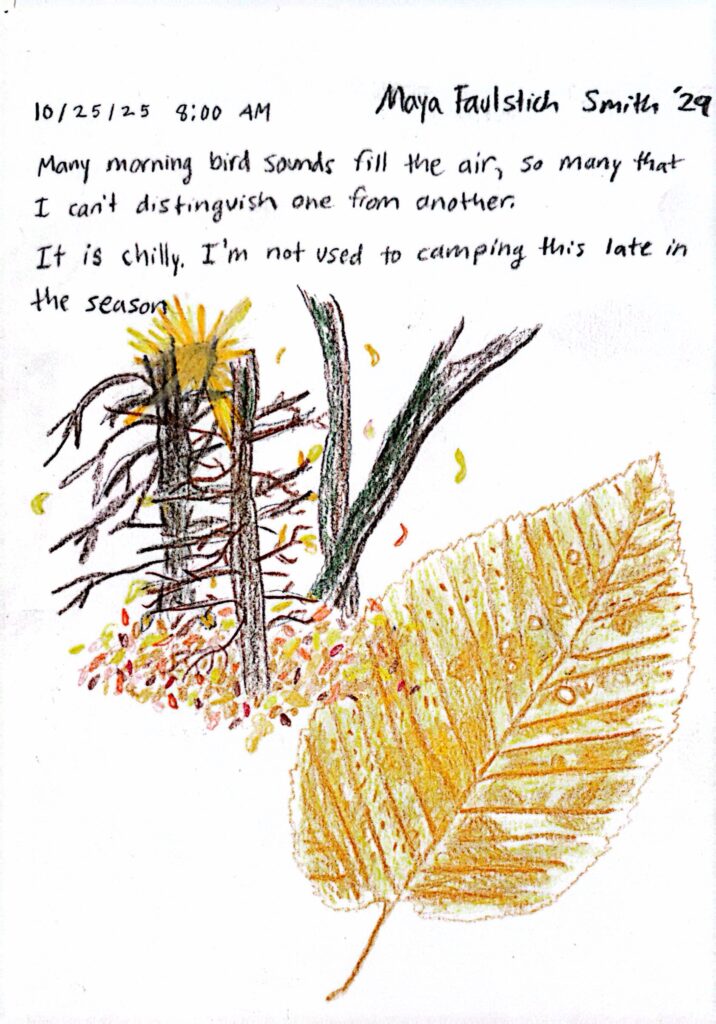 10/25/25 8:00 AM
Maya Faulstich Smith '29
Many morning bird sounds fill the air, so many that
I can't distinguish one from another.
It is chilly. I'm not used to camping this late in
the season